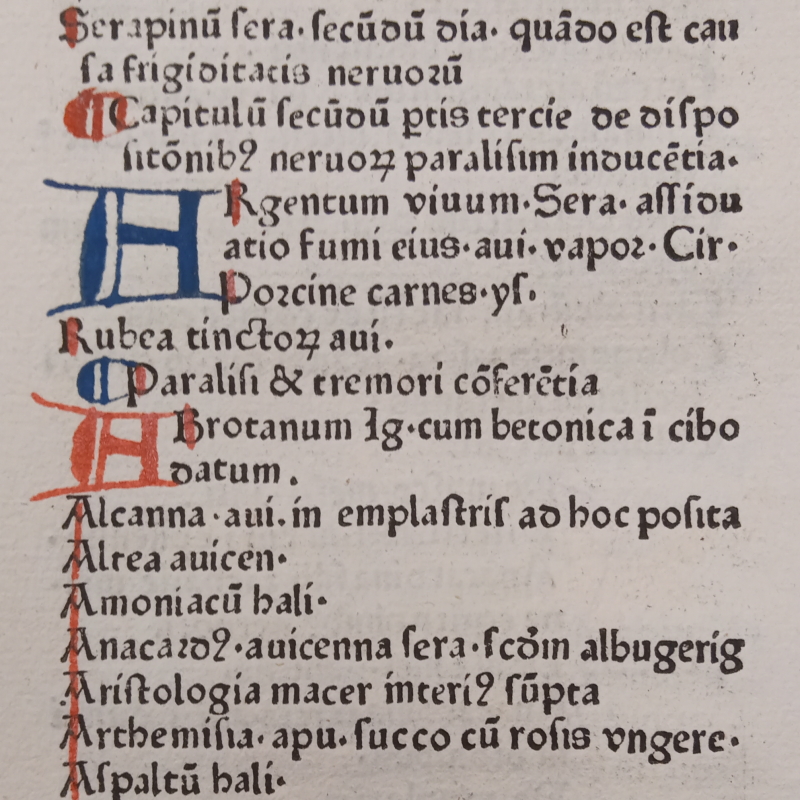 Serapinū ſera. ſecūdū dia. quādo eſt cau
ſa frigiditatis neruoꝛū
¶ Capitulū ſecūdū ꝑtis tercie de diſpo
ſitōnibꝰ neruoꝝ paraliſim inducētia.
ARgentum viuum. Sera. aſſidu
atio fumi eius. aui. vapoꝛ. Cir.
Poꝛcine carnes. yſ.
Rubea tinctoꝝ aui.
¶ Paraliſi & tremori cōferētia
ABrotanum Ig. cum betonica ī cibo
datum.
Alcanna. aui. in emplaſtriſ ad hoc poſita
Alrea auicen.
Amoniacū hali.
Anacaꝛdꝰ. auicenna ſera. ſcdm̄ albugerig
Ariſtologia macer interiꝰ ſūpta
Arthemiſia. apu. ſucco cū roſis vngere.
Aſpaltū hali.